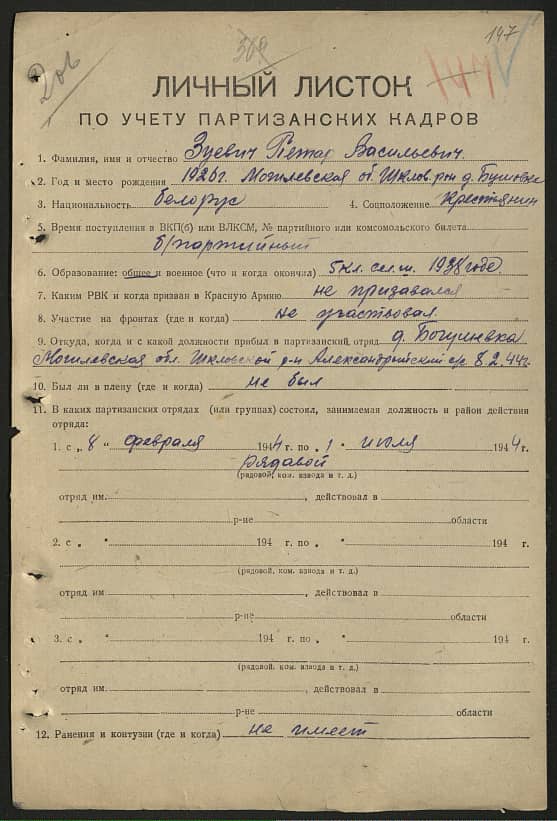 147
309
147
ЛИЧНЫЙ ЛИСТОК
ПО УЧЕТУ ПАРТИЗАНСКИХ КАДРОВ
1. Фамилия, имя и отчество Зуевич Петар Васильевич.
2. Год и место рождения 1926г. Могилевская об. Шклов. рон д.
3. Национальность белорус 4. Соцположение Крестянин
5. Время поступления в ВКП(б) или ВЛКСМ, № партийного или комсомольского билета
б/партийный
6. Образование: общее и военное (что и когда окончил) 5 кл. сел. ш. 1938 годе.
7. Каким РВК и когда призван в Красную Армию не призавался
8. Участие на фронтах (где и когда) не участвовал.
9. Откуда, когда и с какой должности прибыл в партизанский отряд д. Богушевка
Могилевская обл. Шкловской р-н Александрийский с/с 8.2.44г.
10. Был ли в плену (где и когда) не был
11. В каких партизанских отрядах (или группах) состоял, занимаемая должность и район действия
отряда:
1. с „ 8 " февраля 1944 г. по „ 1 " июля 1944 г.
рядавой
(рядовой, ком. взвода и т. д.)
отряд им. , действовал в
р-не области
2. с „ " 194 г. по „ " 194 г.
(рядовой, ком. взвода и т. д.)
отряд им. , действовал в
р-не области
3. с „ " 194 г. по „ " 194 г.
(рядовой, ком. взвода и т. д.)
отряд им. , действовал в
р-не области
12. Ранения и контузии (где и когда) не имеет